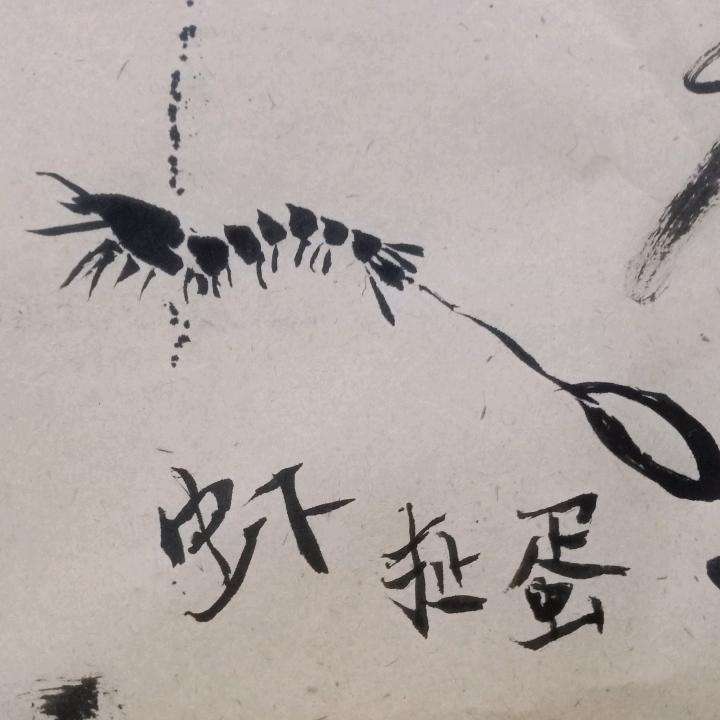 虾扯蛋